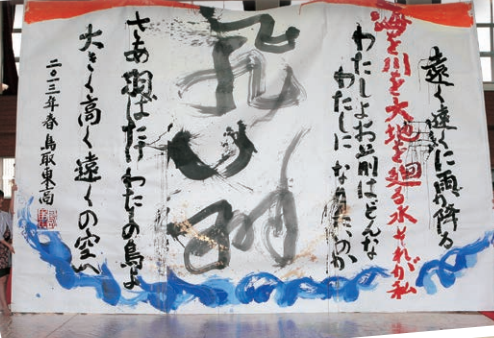 遠く遠くに雨が降る
海を川を大地を廻る水それが私
わたしよお前はどんな
わたしに なりたいのか
飛翔
さあ羽ばたけわたしの鳥よ
大きく高く遠くの空へ
二〇一三年春 鳥取東高